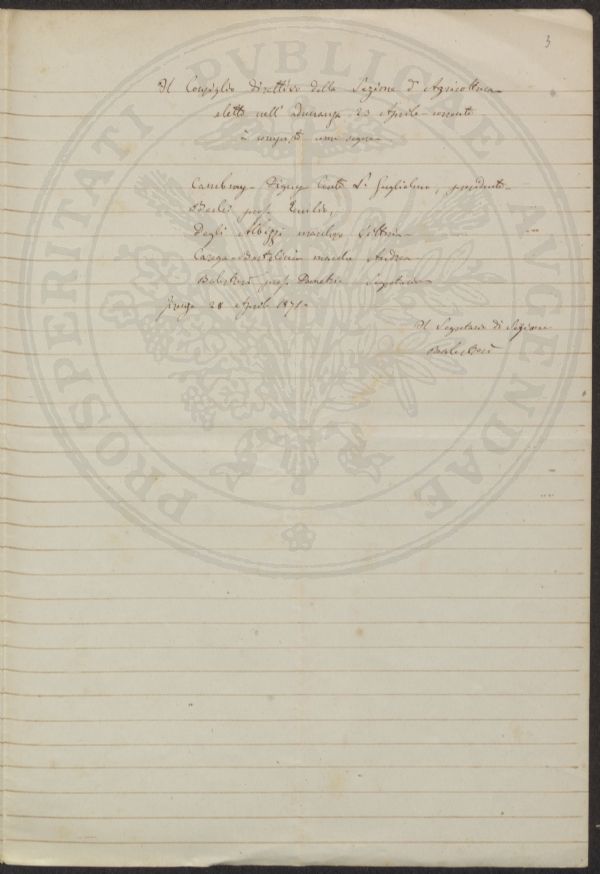 3
Il Consiglio Direttivo della Sezione d'Agricoltura
eletto nell'adunanza 23 Aprile corrente
è composto come segue
Cambray-Digny Conte L. Guglielmo, presidente
Bechi prof. Emilio,
Degli Albizzi marchese Vittorio
Carega-Bertolini marchese Andrea
Balestrieri prof. Segretario
Firenze 28 Aprile 1871
Il Segretario di Sezione
PROSPERITATI PUBLICAE AUGENDAE